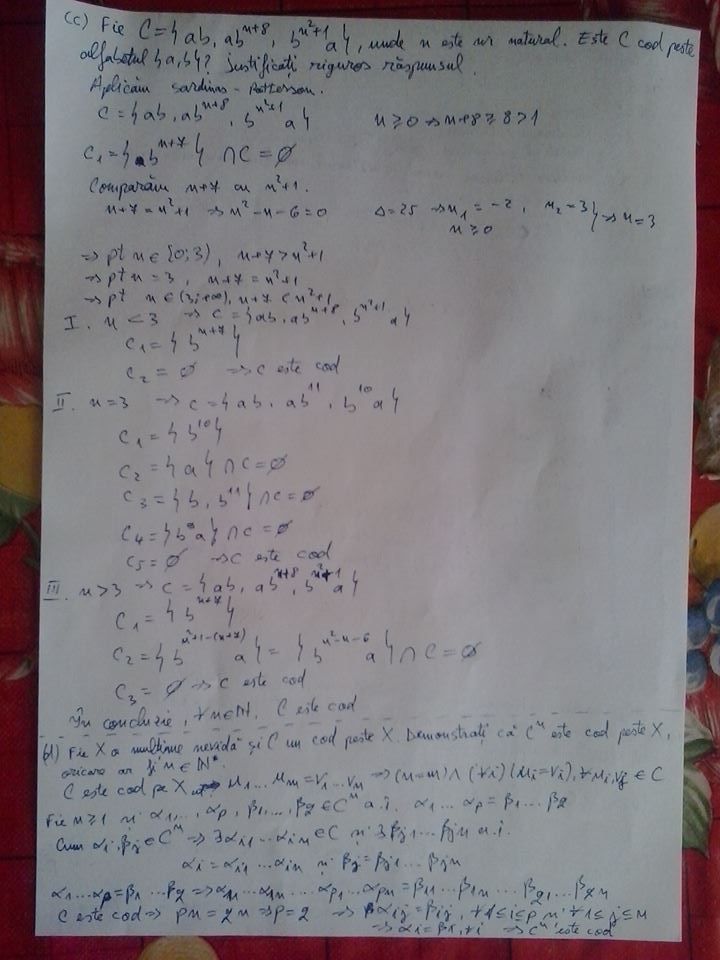 (c) Fie C={ab, abⁿ⁺⁸, bⁿ²⁺¹a}, unde n este nr natural. Este C cod peste
alfabetul {a,b}? justificați riguros răspunsul.
Aplicăm Sardinas - Patterson.
C={ab, abⁿ⁺⁸, bⁿ²⁺¹a} n≥0 ⇒ n+8≥8>1
C₁={bⁿ⁺⁷} ∩C=∅
Comparăm n+7 cu n²+1.
n+7=n²+1 ⇒ n²-n-6=0 Δ=25 ⇒ n₁=-2, n₂=3} ⇒ n=3
n≥0
⇒ pt n∈[0;3), n+7>n²+1
⇒ pt n=3, n+7=n²+1
⇒ pt n∈(3;+∞), n+7<n²+1
I. n<3 ⇒ C={ab, abⁿ⁺⁸, bⁿ²⁺¹a}
C₁={bⁿ⁺⁷}
C₂=∅ ⇒ C este cod
II. n=3 ⇒ C={ab, ab¹¹, b¹⁰a}
C₁={b¹⁰}
C₂={a}∩C=∅
C₃={b, b¹¹}∩C=∅
C₄={b⁹a}∩C=∅
C₅=∅ ⇒ C este cod
III. n>3 ⇒ C={ab, abⁿ⁺⁸, bⁿ²⁺¹a}
C₁={bⁿ⁺⁷}
C₂={bⁿ²⁺¹⁻⁽ⁿ⁺⁷⁾a}={bⁿ²⁻ⁿ⁻⁶a}∩C=∅
C₃=∅ ⇒ C este cod
În concluzie, ∀n∈ℕ, C este cod
(d) Fie X o mulțime nevidă și C un cod peste X. Demonstrați că Cⁿ este cod peste X,
oricare ar fi n∈ℕ*.
C este cod pe X u₁...uₘ=v₁...vₙ ⇒ (n=m)∧(∀i)(uᵢ=vᵢ), ∀uᵢ,vⱼ∈C
Fie n≥1 și α₁,...,αₚ, β₁,...,β_q∈Cⁿ a.î. α₁...αₚ=β₁...β_q
Cum αᵢ,βⱼ∈Cⁿ ⇒ ∃αᵢ₁...αᵢₙ∈C și ∃βⱼ₁...βⱼₙ a.î.
αᵢ=αᵢ₁...αᵢₙ și βⱼ=βⱼ₁...βⱼₙ
α₁...αₚ=β₁...β_q ⇒ α₁₁...α₁ₙ...αₚ₁...αₚₙ=β₁₁...β₁ₙ...β_q₁...β_qₙ
C este cod ⇒ pn=qn ⇒ p=q ⇒ αᵢⱼ=βᵢⱼ, ∀1≤i≤p și ∀1≤j≤n
⇒ αᵢ=βᵢ, ∀i ⇒ Cⁿ este cod